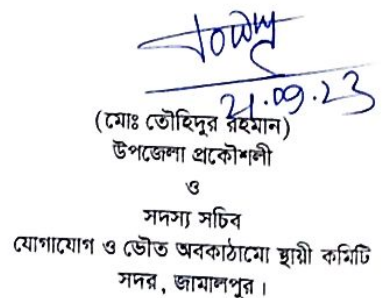 21.09.23
(মোঃ তৌহিদুর রহমান)
উপজেলা প্রকৌশলী
ও
সদস্য সচিব
যোগাযোগ ও ভৌত অবকাঠামো স্থায়ী কমিটি
সদর, জামালপুর।